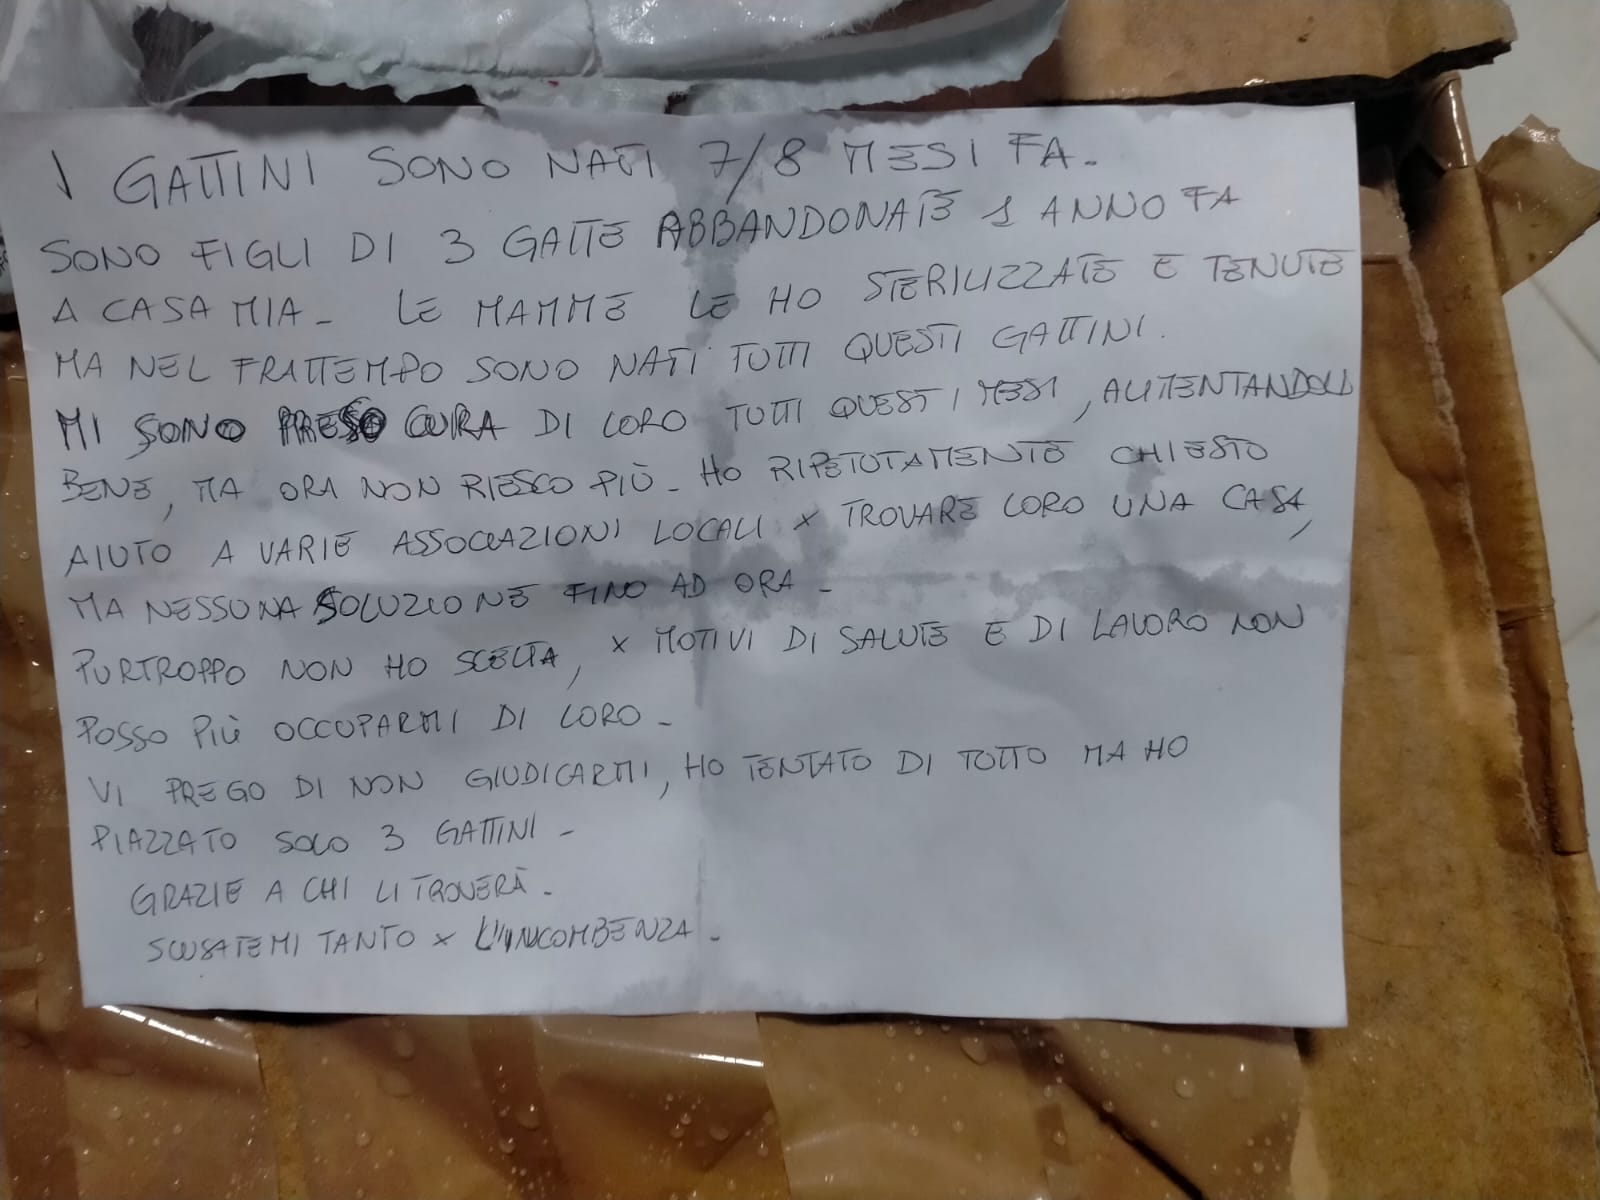 I GATTINI SONO NATI 7/8 MESI FA -
SONO FIGLI DI 3 GATTE ABBANDONATE 1 ANNO FA
A CASA MIA - LE MAMME LE HO STERILIZZATE E TENUTE
MA NEL FRATTEMPO SONO NATI TUTTI QUESTI GATTINI.
MI SONO PRESO CURA DI LORO TUTTI QUESTI MESI, ALIMENTANDOLI
BENE, MA ORA NON RIESCO PIÙ - HO RIPETUTAMENTE CHIESTO
AIUTO A VARIE ASSOCIAZIONI LOCALI x TROVARE LORO UNA CASA,
MA NESSUNA SOLUZIONE FINO AD ORA -
PURTROPPO NON HO SCELTA, x MOTIVI DI SALUTE E DI LAVORO NON
POSSO PIÙ OCCUPARMI DI LORO -
VI PREGO DI NON GIUDICARMI, HO TENTATO DI TUTTO MA HO
PIAZZATO SOLO 3 GATTINI -
GRAZIE A CHI LI TROVERÀ -
SCUSATEMI TANTO x L'INCOMBENZA -